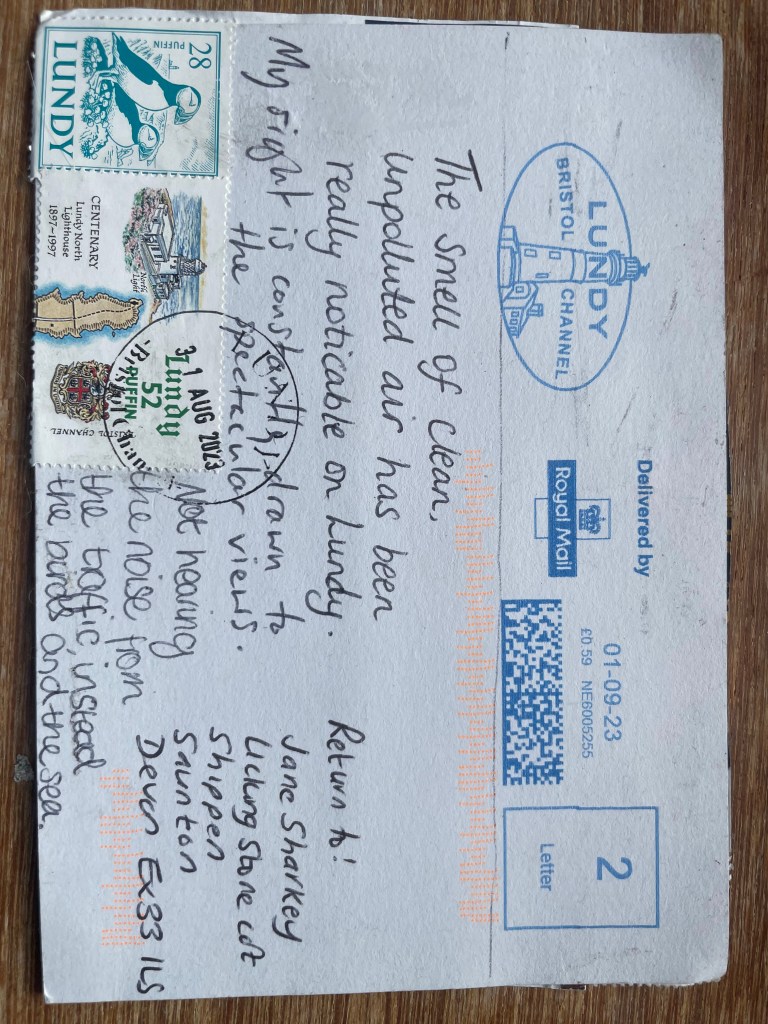 LUNDY
BRISTOL CHANNEL
Delivered by
Royal Mail
01-09-23
£0.59 NE6005255
2
Letter
28
PUFFIN
LUNDY
CENTENARY
Lundy North
Lighthouse
1897-1997
North
Light
BRISTOL CHANNEL
Lundy
52
PUFFIN
31 AUG 2023
The smell of clean,
unpolluted air has been
really noticable on Lundy.
My sight is constantly drawn to
the spectacular views.
Not hearing
the noise from
the traffic, instead
the birds and the sea.
Return to!
Jane Sharkey
Licking Stone cot
Shippen
Saunton
Devon Ex33 1LS